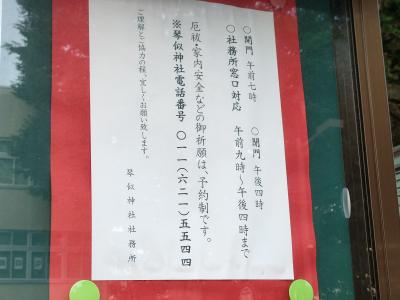 ○開門 午前七時 ○閉門 午後四時
○社務所窓口対応 午前九時～午後四時まで
厄祓・家内安全などの御祈願は、予約制です。
※琴似神社電話番号 〇一一(六二一)五五四四
ご理解とご協力の程、宜しくお願い致します。
琴似神社社務所